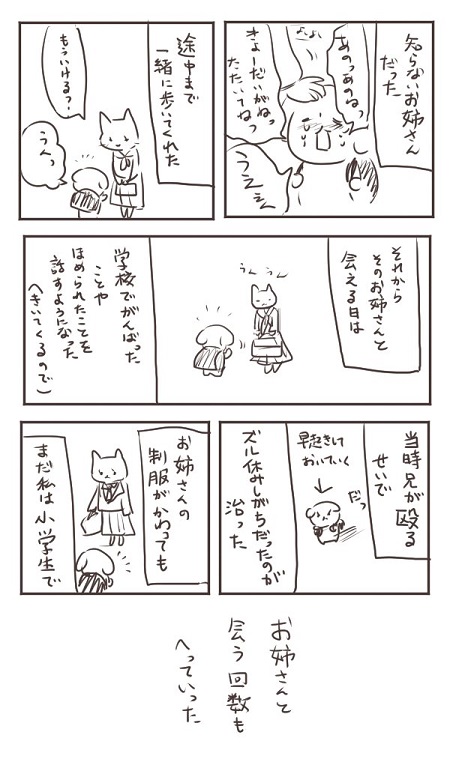 知らないお姉さん
だった
よしよし
あのっあのねっ
きょーだいがねっ
たたいてねっ
うええん
途中まで
一緒に歩いてくれた
もういける?
うんっ
それから
そのお姉さんと
会える日は
うんうん
学校でがんばった
ことや
ほめられたことを
話すようになった
(きいてくるので)
当時兄が殴る
せいで
だっ
早起きして
おいていく
ズル休みしがちだったのが
治った
お姉さんの
制服がかわっても
まだ私は小学生で
お姉さんと
会う回数も
へっていった